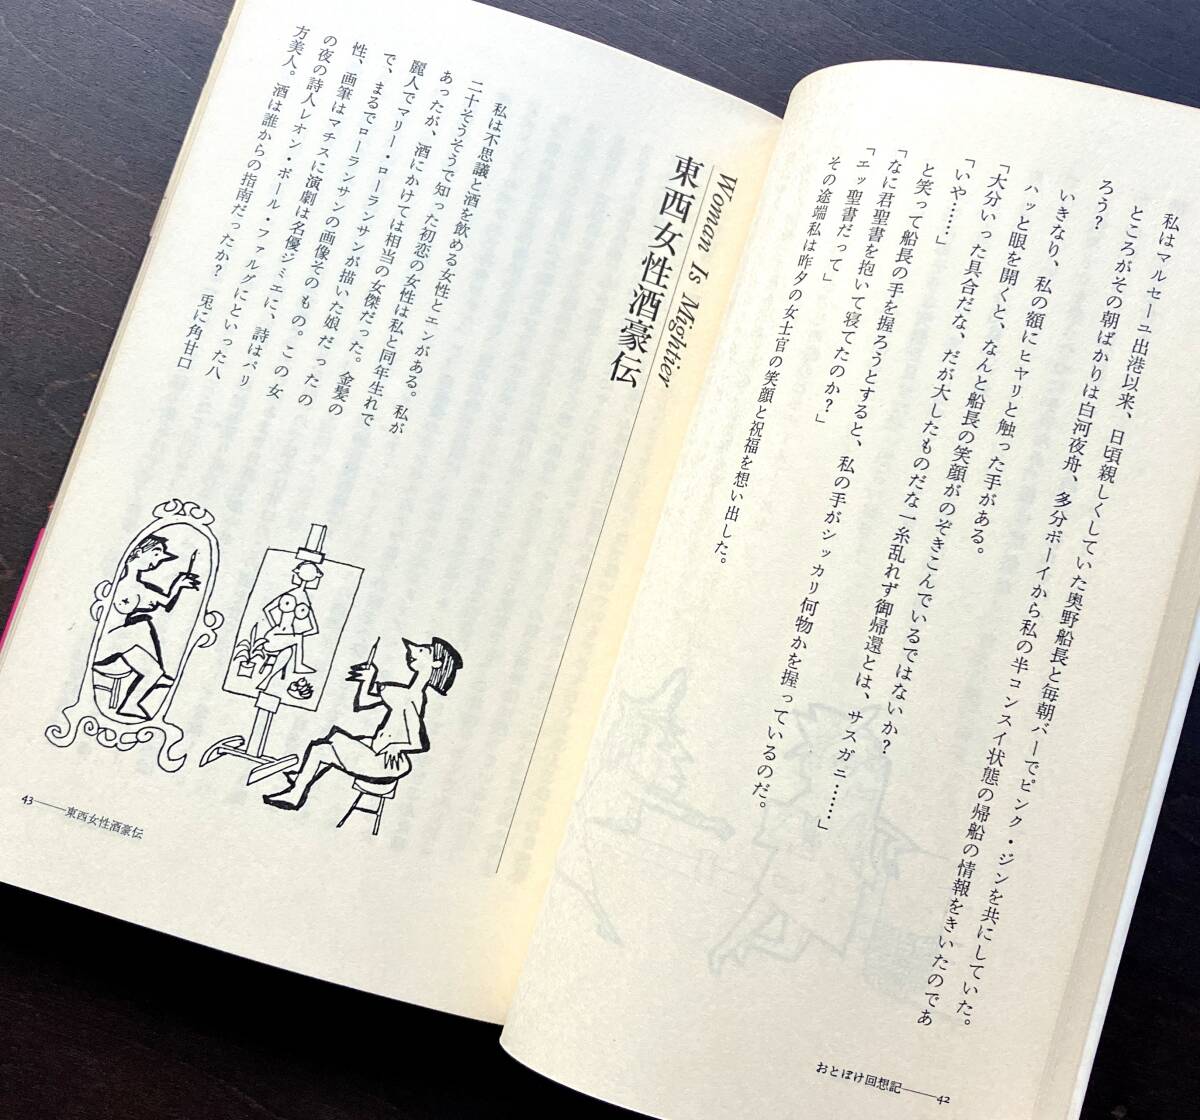 私はマルセーユ出港以来、日頃親しくしていた奥野船長と毎朝バーでピンク・ジンを共にしていた。
ところがその朝ばかりは白河夜舟、多分ボーイから私の半コンスイ状態の帰船の情報をきいたのであ
ろう?
いきなり、私の額にヒヤリと触った手がある。
ハッと眼を開くと、なんと船長の笑顔がのぞきこんでいるではないか?
「大分いった具合だな、だが大したものだな一糸乱れず御帰還とは、サスガニ……」
「いや……」
と笑って船長の手を握ろうとすると、私の手がシッカリ何物かを握っているのだ。
「なに君聖書を抱いて寝てたのか?」
「エッ聖書だって」
その途端私は昨夕の女士官の笑顔と祝福を想い出した。
おとぼけ回想記——42
Woman Is Mightier
東西女性酒豪伝
私は不思議と酒を飲める女性とエンがある。私が
二十そうそうで知った初恋の女性は私と同年生れで
あったが、酒にかけては相当の女傑だった。金髪の
麗人でマリー・ローランサンが描いた娘だったの
で、まるでローランサンの画像そのもの。この女
性、画筆はマチスに演劇は名優ジミエに、詩はパリ
の夜の詩人レオン・ポール・ファルグにといった八
方美人。酒は誰からの指南だったか? 兎に角甘口
43——東西女性酒豪伝